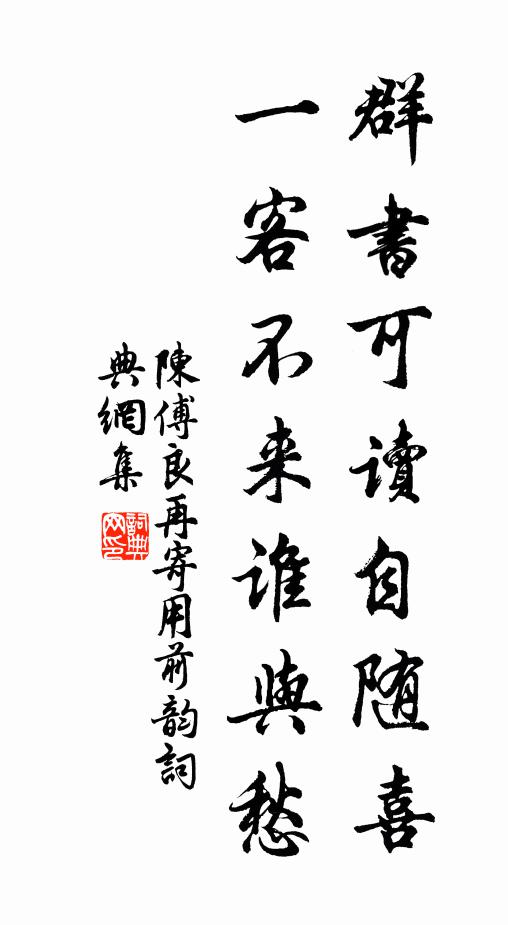 群書可讀自随喜
一客不来誰與愁
陳傅良再寄用前韵詞
典網集
詞典網印